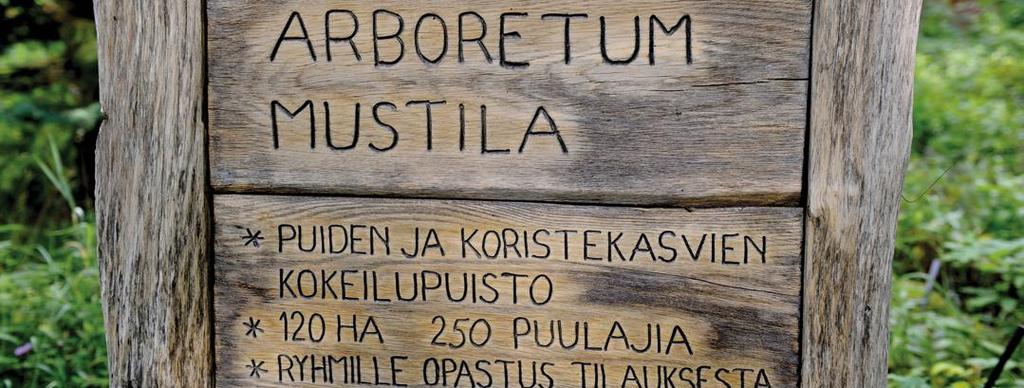 ARBORETUM
MUSTILA
* PUIDEN JA KORISTEKASVIEN
KOKEILUPUISTO
* 120 HA 250 PUULAJIA
* RYHMILLE OPASTUS TILAUKSESTA